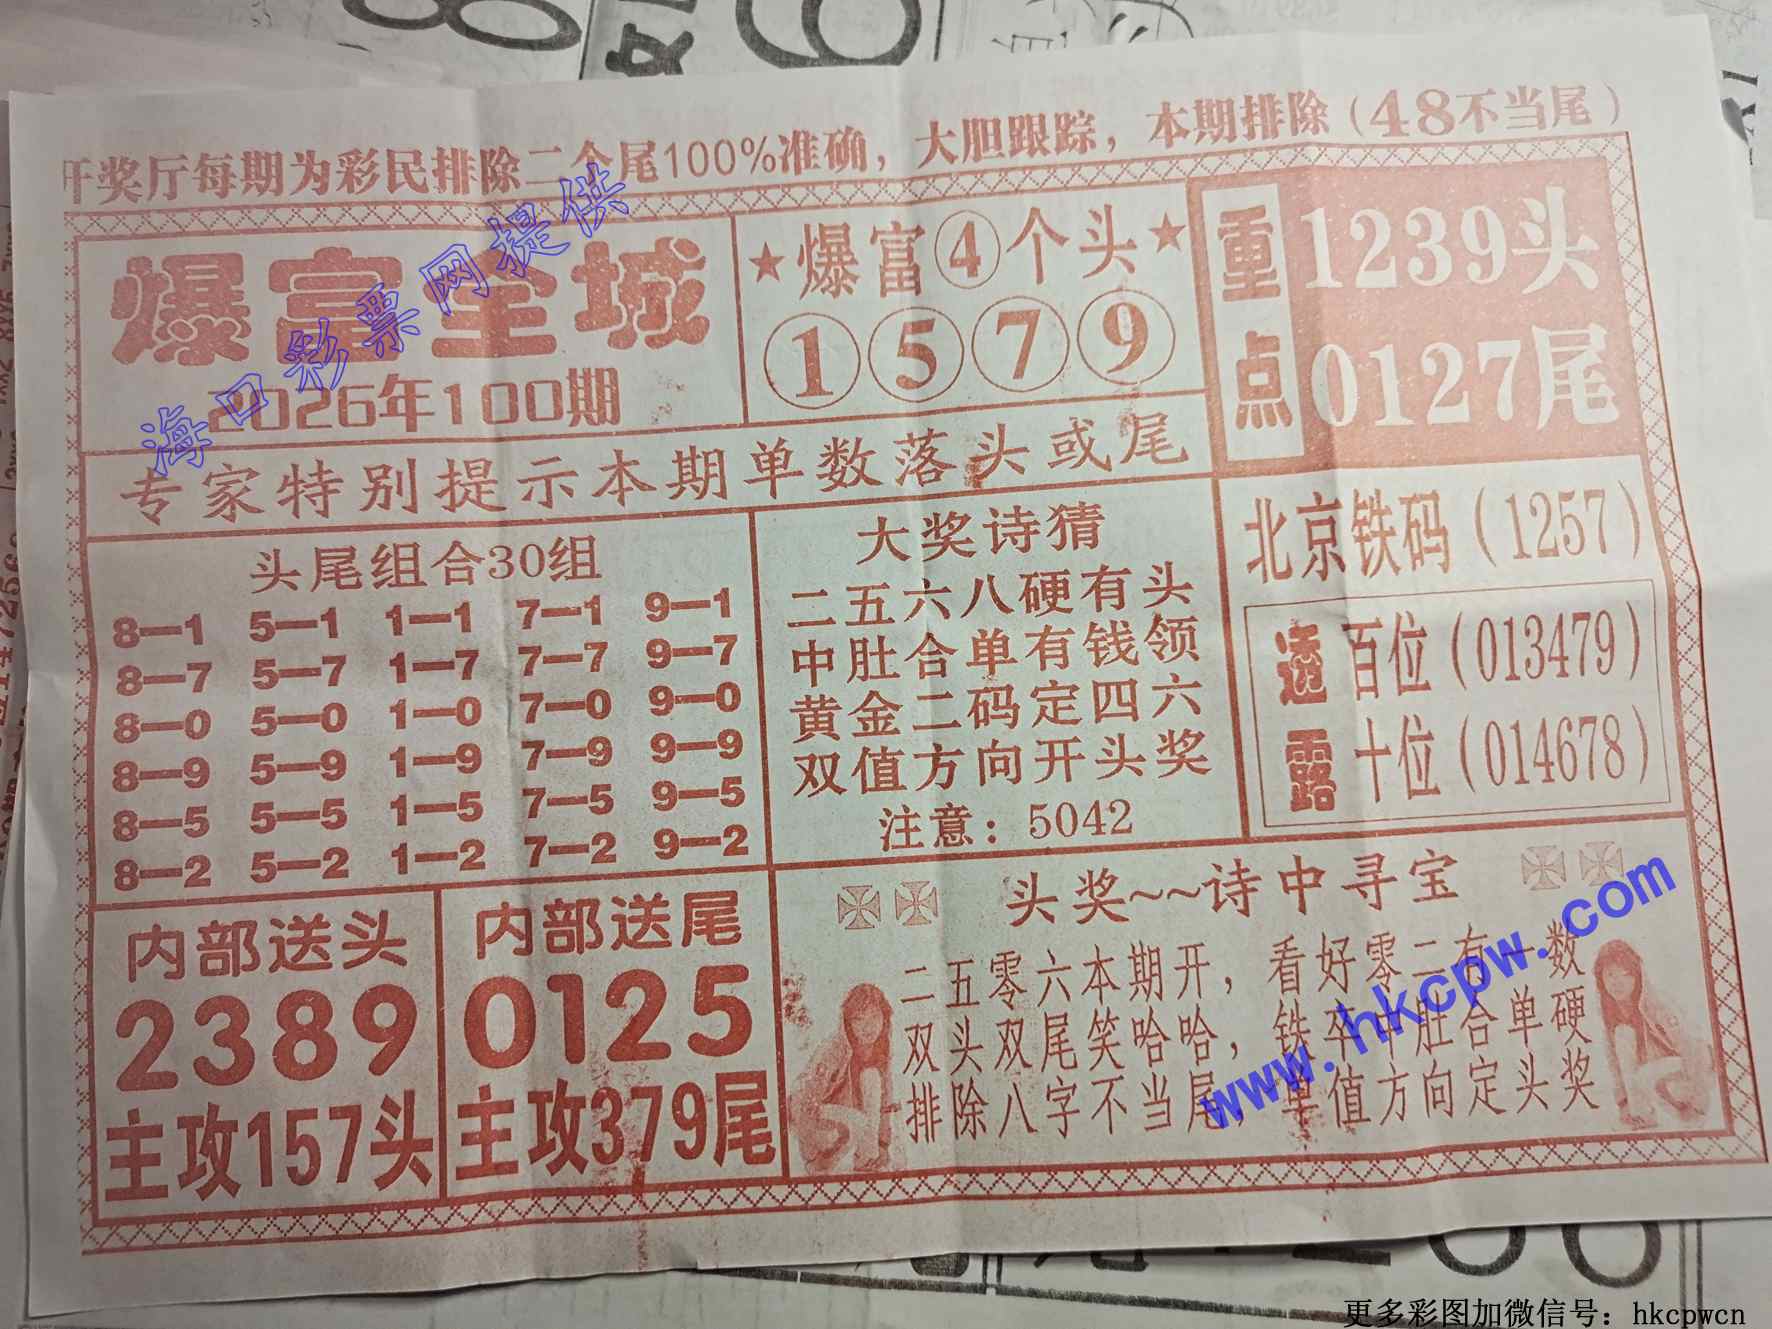 开奖厅每期为彩民排除二个尾100%准确，大胆跟踪，本期排除（48不当尾）
爆富全城
2026年100期
★爆富④个头★
①⑤⑦⑨
重点
1239头
0127尾
专家特别提示本期单数落头或尾
头尾组合30组
8—1 5—1 1—1 7—1 9—1
8—7 5—7 1—7 7—7 9—7
8—0 5—0 1—0 7—0 9—0
8—9 5—9 1—9 7—9 9—9
8—5 5—5 1—5 7—5 9—5
8—2 5—2 1—2 7—2 9—2
大奖诗猜
二五六八硬有头
中肚合单有钱领
黄金二码定四六
双值方向开头奖
注意：5042
北京铁码（1257）
透露
百位（013479）
十位（014678）
内部送头
2389
主攻157头
内部送尾
0125
主攻379尾
头奖~~诗中寻宝
二五零六本期开，看好零二有一数
双头双尾笑哈哈，铁卒中肚合单硬
排除八字不当尾，单值方向定头奖
海口彩票网提供
www.hkcpw.com
更多彩图加微信号：hkcpwcn